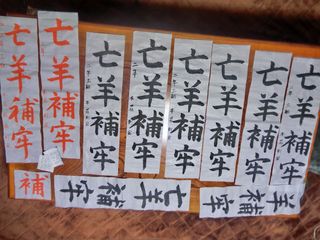 亡羊補牢
亡羊補牢
亡羊補牢
亡羊補牢
亡羊補牢
亡羊補牢
亡羊補牢
亡羊補牢
補
亡羊補牢
羊補牢